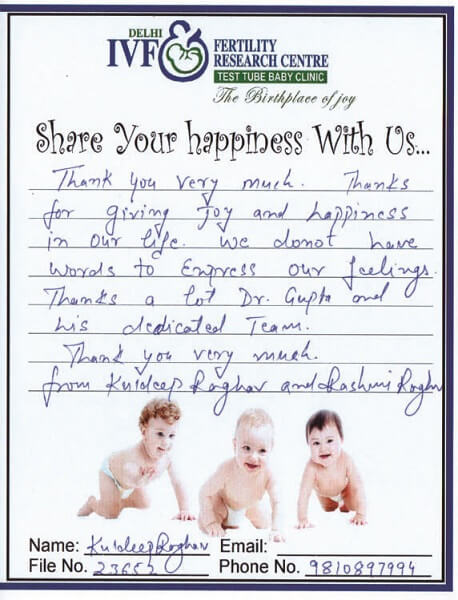 DELHI
IVF & FERTILITY
RESEARCH CENTRE
TEST TUBE BABY CLINIC
The Birthplace of joy
Share Your happiness With Us...
Thank you very much. Thanks
for giving Joy and happiness
in our life. We donot have
words to Express our feelings.
Thanks a lot Dr. Gupta and
his dedicated Team.
Thank you very much.
from Kuldeep Raghav and Rashmi Raghav
Name: Kuldeep Raghav Email:
File No. 23652 Phone No. 9810897994